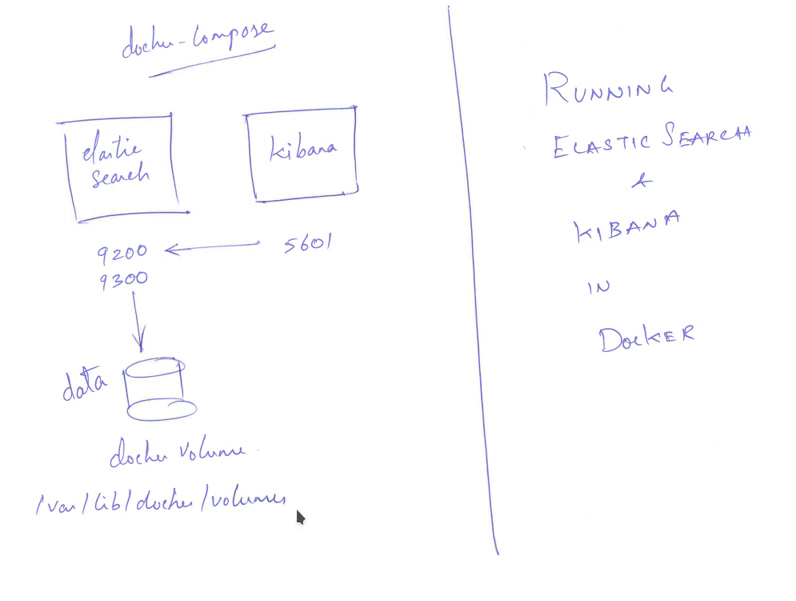 docker-compose
elastic
search
kibana
9200
5601
9300
data
docker volume
/var/lib/docker/volumes
RUNNING
ELASTIC SEARCH
&
KIBANA
IN
DOCKER